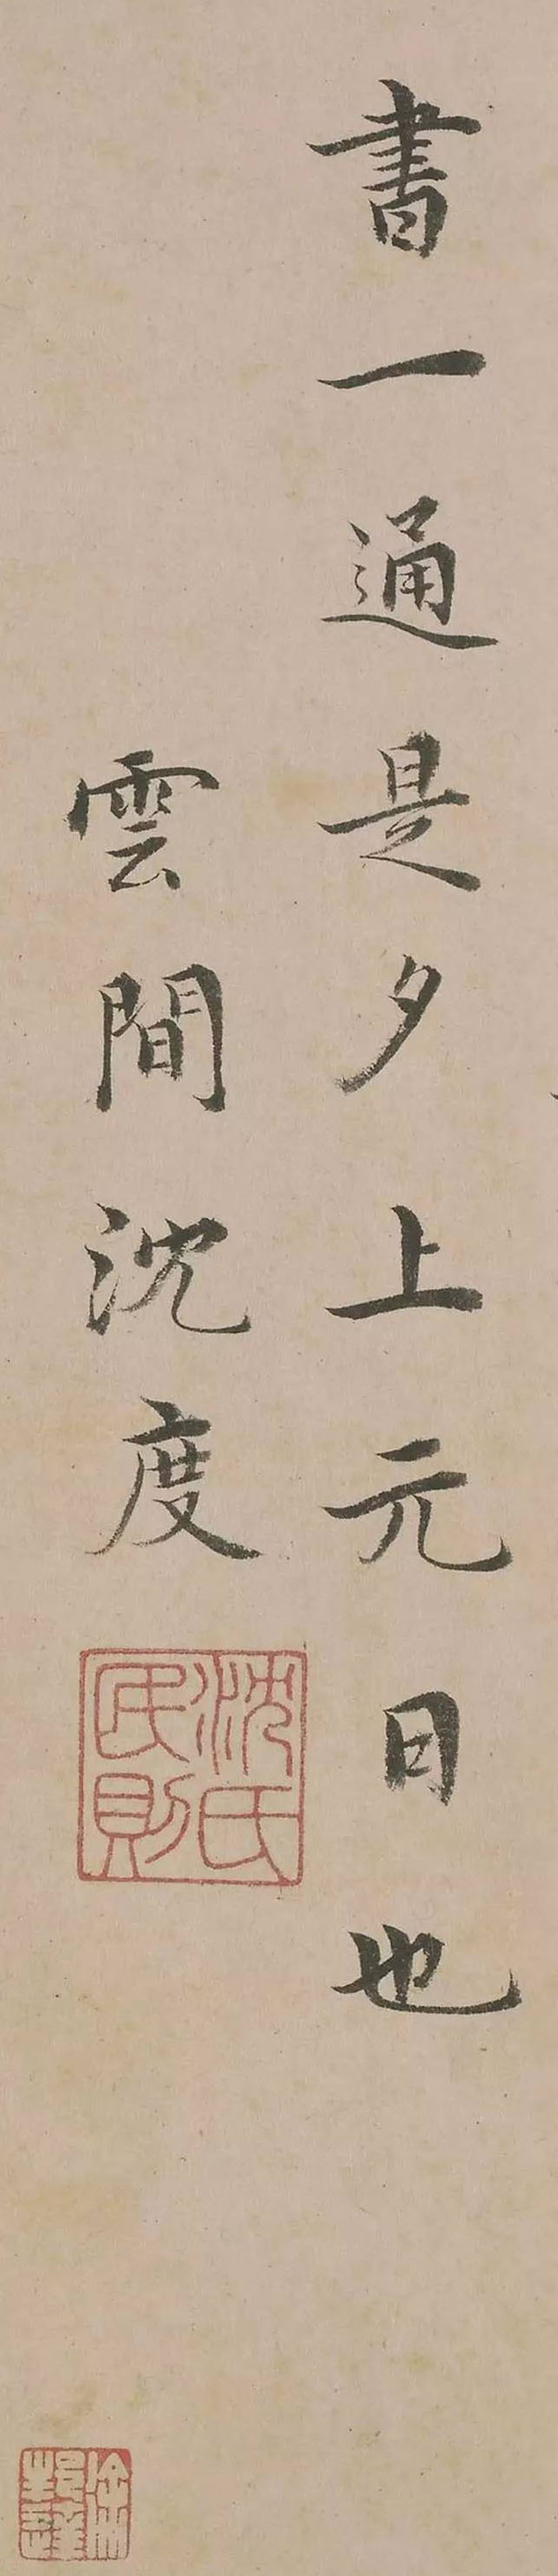 書一通是夕上元日也
雲間沈度
沈氏
民則